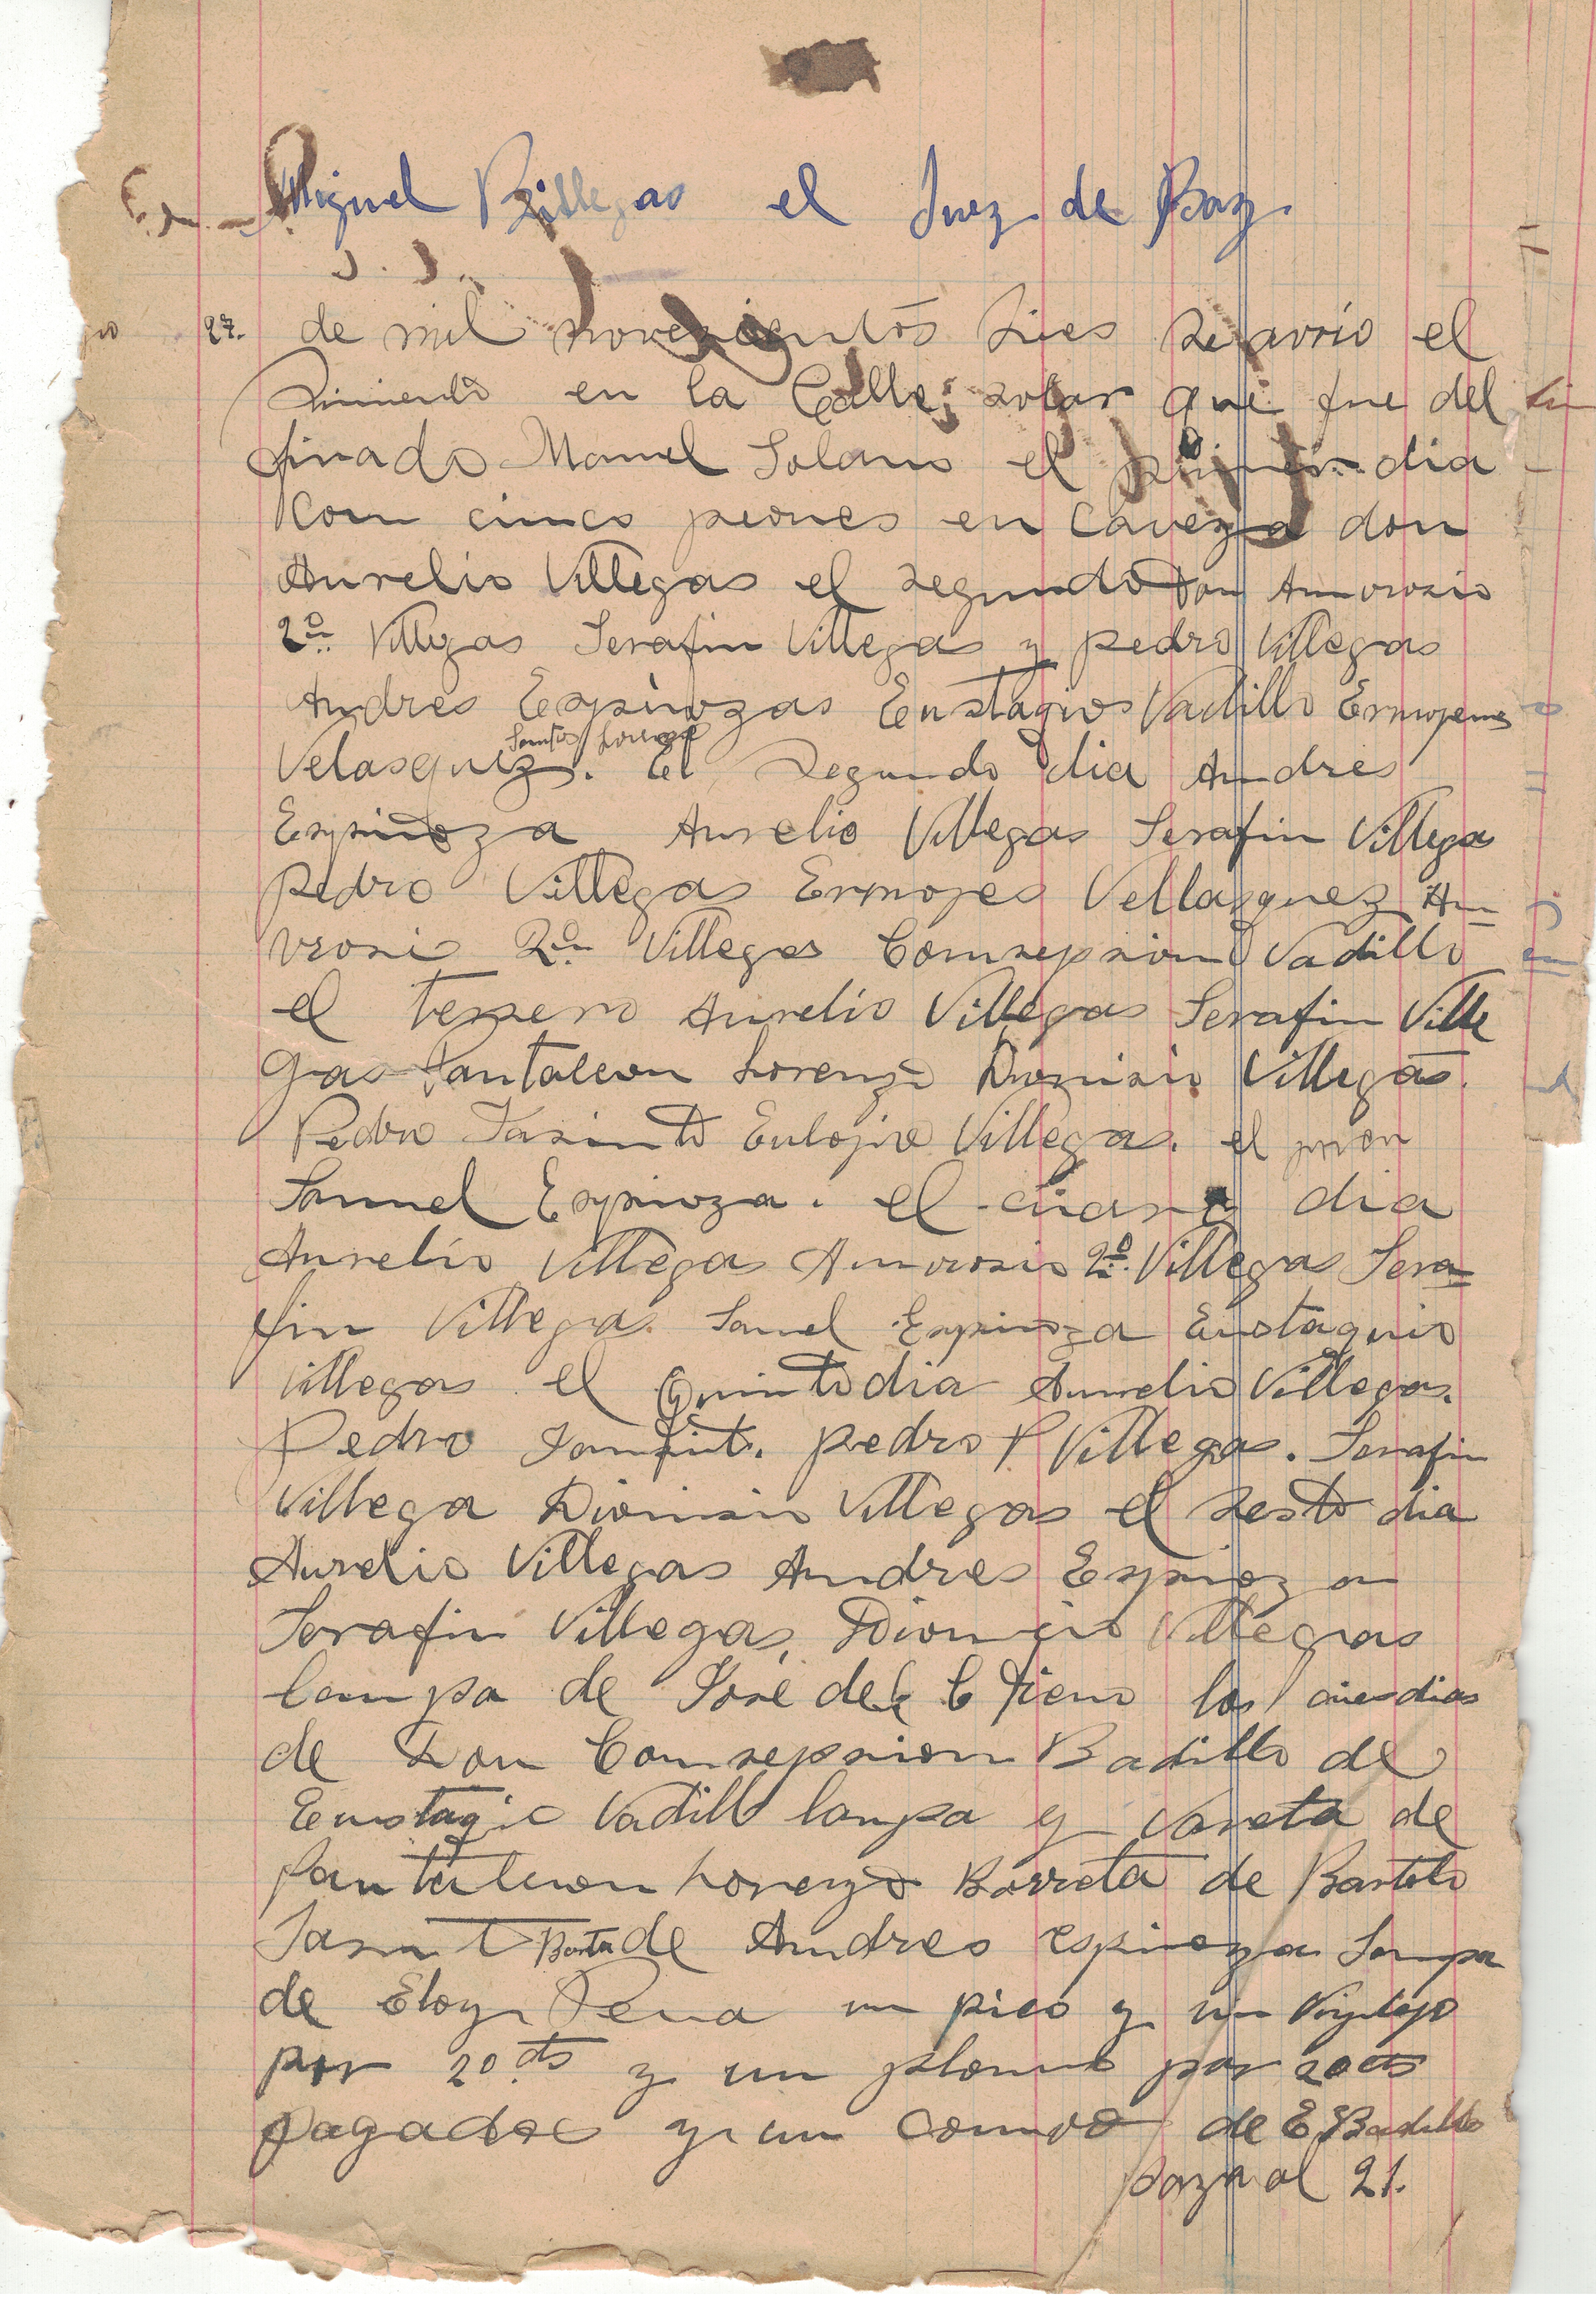 Miguel Billegas el Juez de Baz.
27. de mil novezientos dies se avrio el
simiento en la Calle; solar que fue del
finado Manuel Solano el primer dia
Kon cinco peones en Caveza don
Aurelio Villegas el segundo Don Amvrosio
2º Villegas Serafin Villegas y pedro Villegas
Andres Espinozas Eustagio Vadillo Ermojenes
Santos Lorenzo
Velasquez. El Segundo dia Andres
Espinoza Aurelio Villegas Serafin Villega
Pedro Villegas Ermojes Vellasquez Am=
vrosi 2º Villegas Comsepsion Vadillo
el tersero Aurelio Villegas Serafin Ville
gas Pantaleon Lorenzo Dionisio Villegas.
Pedro Jasinto Eulojio Villegas. el peon
Samuel Espinoza. el cuarto dia
Aurelio Villegas Amvrosio 2º Villegas Sera=
fin Villegas. Samuel Espinoza Eustaquio
Villegas el Quinto dia Aurelio Villegas.
Pedro Jasinto. pedro P. Villegas. Serafin
Villega Dionisio Villegas el sesto dia
Aurelio Villegas Andres Espinoza
Serafin Villegas, Dionicio Villegas
lampa de José del C los dias
de Don Comsepsion Badillo de
Eustagio Vadillo lampa y Vareta de
Pantaleon Lorenzo Barreta de Bartolo
Jasinto Barreta de Andres espinoza Lampa
de Eloy Pena un pico y un
por 20 cts y un plomo por 20 cts
pagados y un de E. Badillo
pasa al 21.